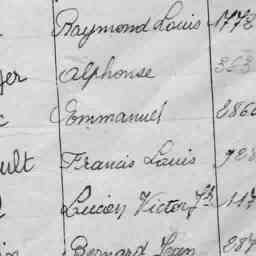 Raymond Louis 1772
yer Alphonse 363
c Emmanuel 2860
ult Francis Louis 928
Lucien Victor Jh 117
Bernard Jean 287